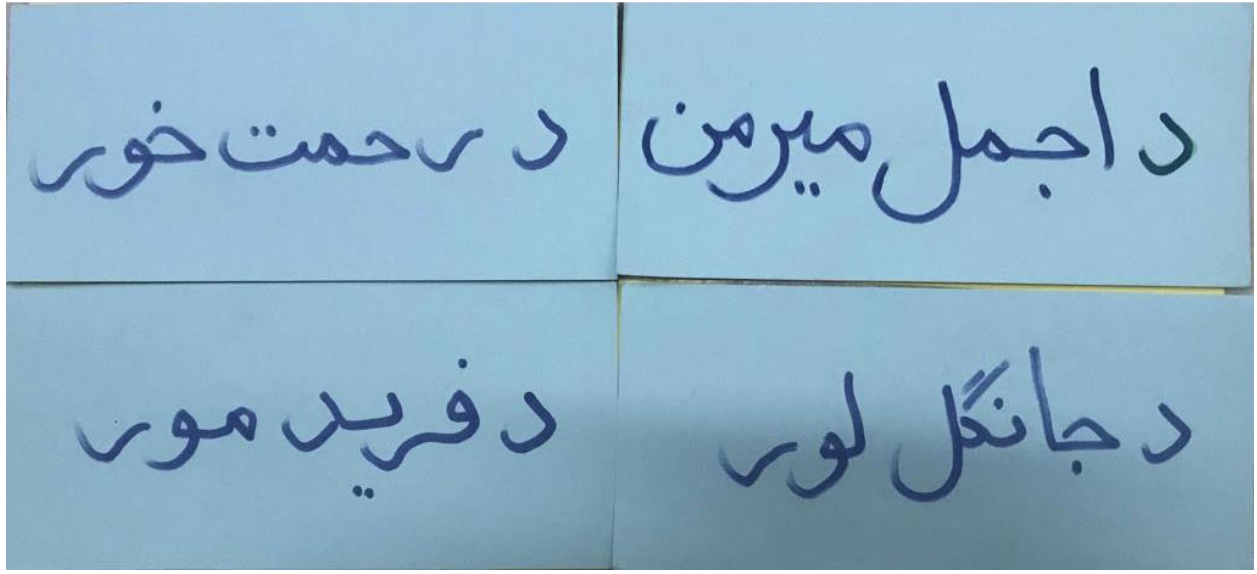 د اجمل میرمن
د رحمت خور
د جانگل لور
د فرید مور